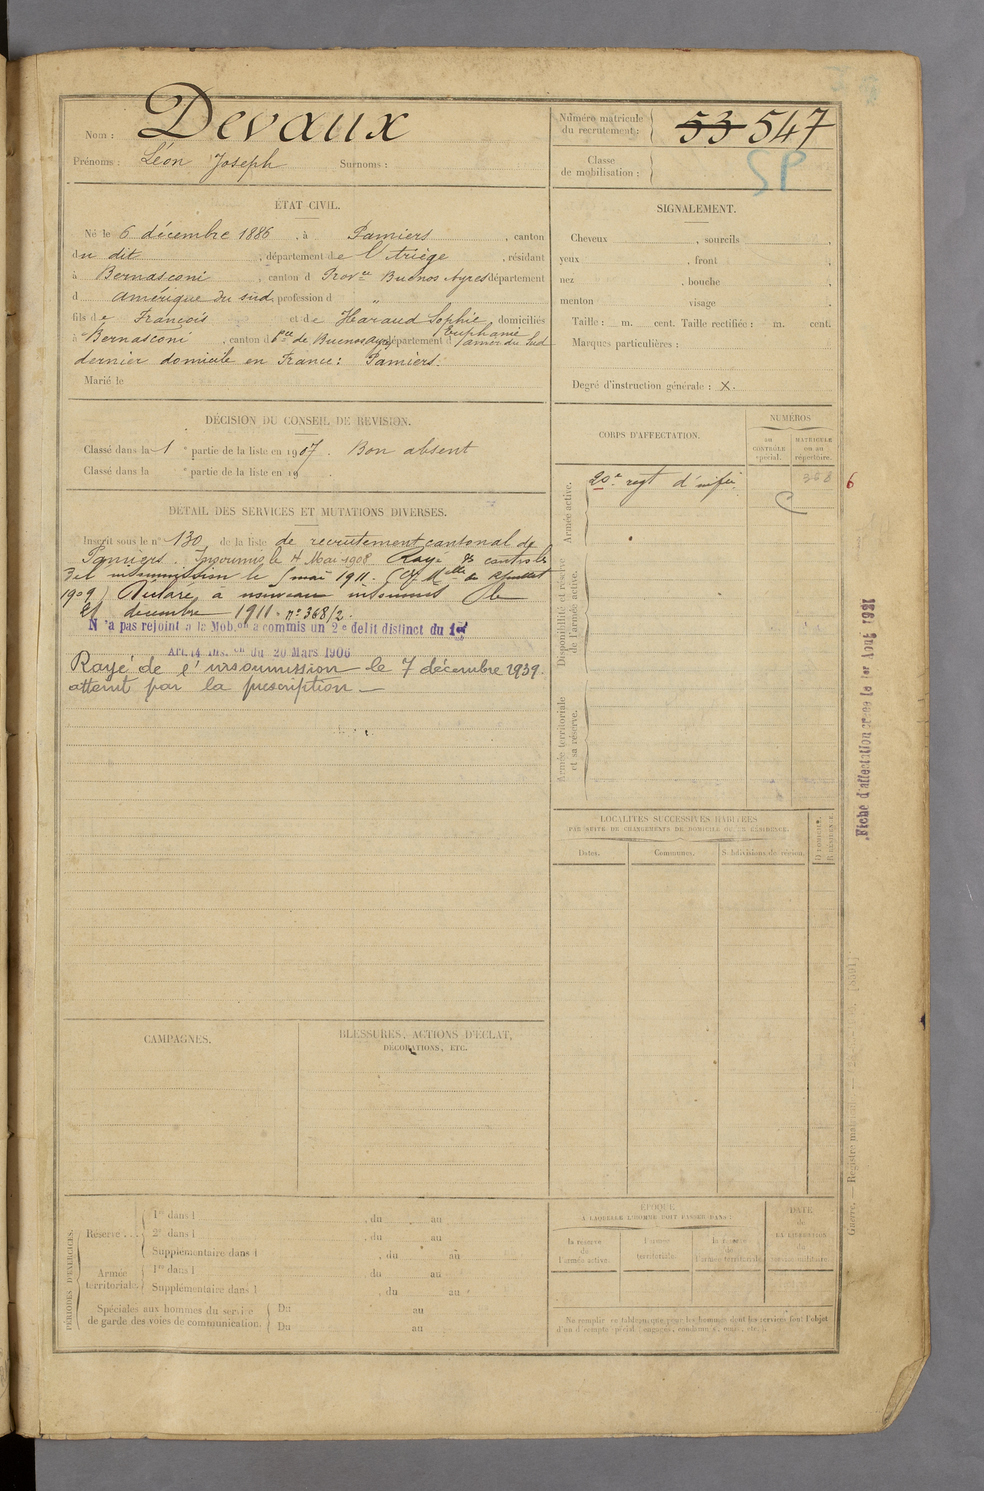 Nom : Devaux
Prénoms : Léon Joseph Surnoms :
Numéro matricule du recrutement : 53 547
Classe de mobilisation :
SP
ÉTAT CIVIL.
Né le 6 décembre 1886, à Pamiers, canton
du dit, département de l'Ariège, résidant
à Bernasconi, canton d Prov.ce Buenos Ayres département
d Amérique du sud, profession d "
fils de François et de Haraud Sophie Euphanie, domiciliés
à Bernasconi, canton d P.ce de Buenos Ayres, département d'amér. du Sud
dernier domicile en France : Pamiers.
Marié le
SIGNALEMENT.
Cheveux , sourcils ,
yeux , front ,
nez , bouche ,
menton visage
Taille : m. cent. Taille rectifiée : m. cent.
Marques particulières :
Degré d'instruction générale : X.
DÉCISION DU CONSEIL DE REVISION.
Classé dans la 1 e partie de la liste en 1907. Bon absent
Classé dans la e partie de la liste en 19
DÉTAIL DES SERVICES ET MUTATIONS DIVERSES.
Inscrit sous le n° 130 de la liste de recrutement cantonal de
Pamiers. Insoumis le 4 Mai 1908 Rayé des controles
de l'insoumission le mai 1911.
1909) Déclaré a nouveau insoumis le
21 décembre 1911. n° 368/2.
N'a pas rejoint à la Mob.on a commis un 2e délit distinct du 1er
Art. 14 Ins.on du 20 Mars 1906
Rayé de l'insoumission le 7 décembre 1939.
atteint par la prescription
CORPS D'AFFECTATION.
NUMÉROS
AU CONTRÔLE spécial.
MATRICULE ou au répertoire.
Armée active.
20e regt d'infie
368
6
Disponibilité et réserve de l'armée active.
Armée territoriale et sa réserve.
Fiche d'affectation créée le 1er Août 1921
LOCALITÉS SUCCESSIVES HABITÉES
PAR SUITE DE CHANGEMENTS DE DOMICILE OU DE RÉSIDENCE.
Dates.
Communes.
Subdivisions de région.
CAMPAGNES.
BLESSURES, ACTIONS D'ÉCLAT,
DÉCORATIONS, ETC.
PÉRIODES D'EXERCICES.
Réserve . . . 1re dans l , du au
2e dans l , du au
Supplémentaire dans l , du au
Armée territoriale. 1re dans l du au
Supplémentaire dans l , du au
Spéciales aux hommes du service de garde des voies de communication. Du au
Du au
ÉPOQUE
À LAQUELLE L'HOMME DOIT PASSER DANS :
la réserve de l'armée active.
l'armée territoriale.
la réserve de l'armée territoriale.
DATE de LA LIBÉRATION du service militaire.
Ne remplir ce tableau que pour les hommes dont les services font l'objet